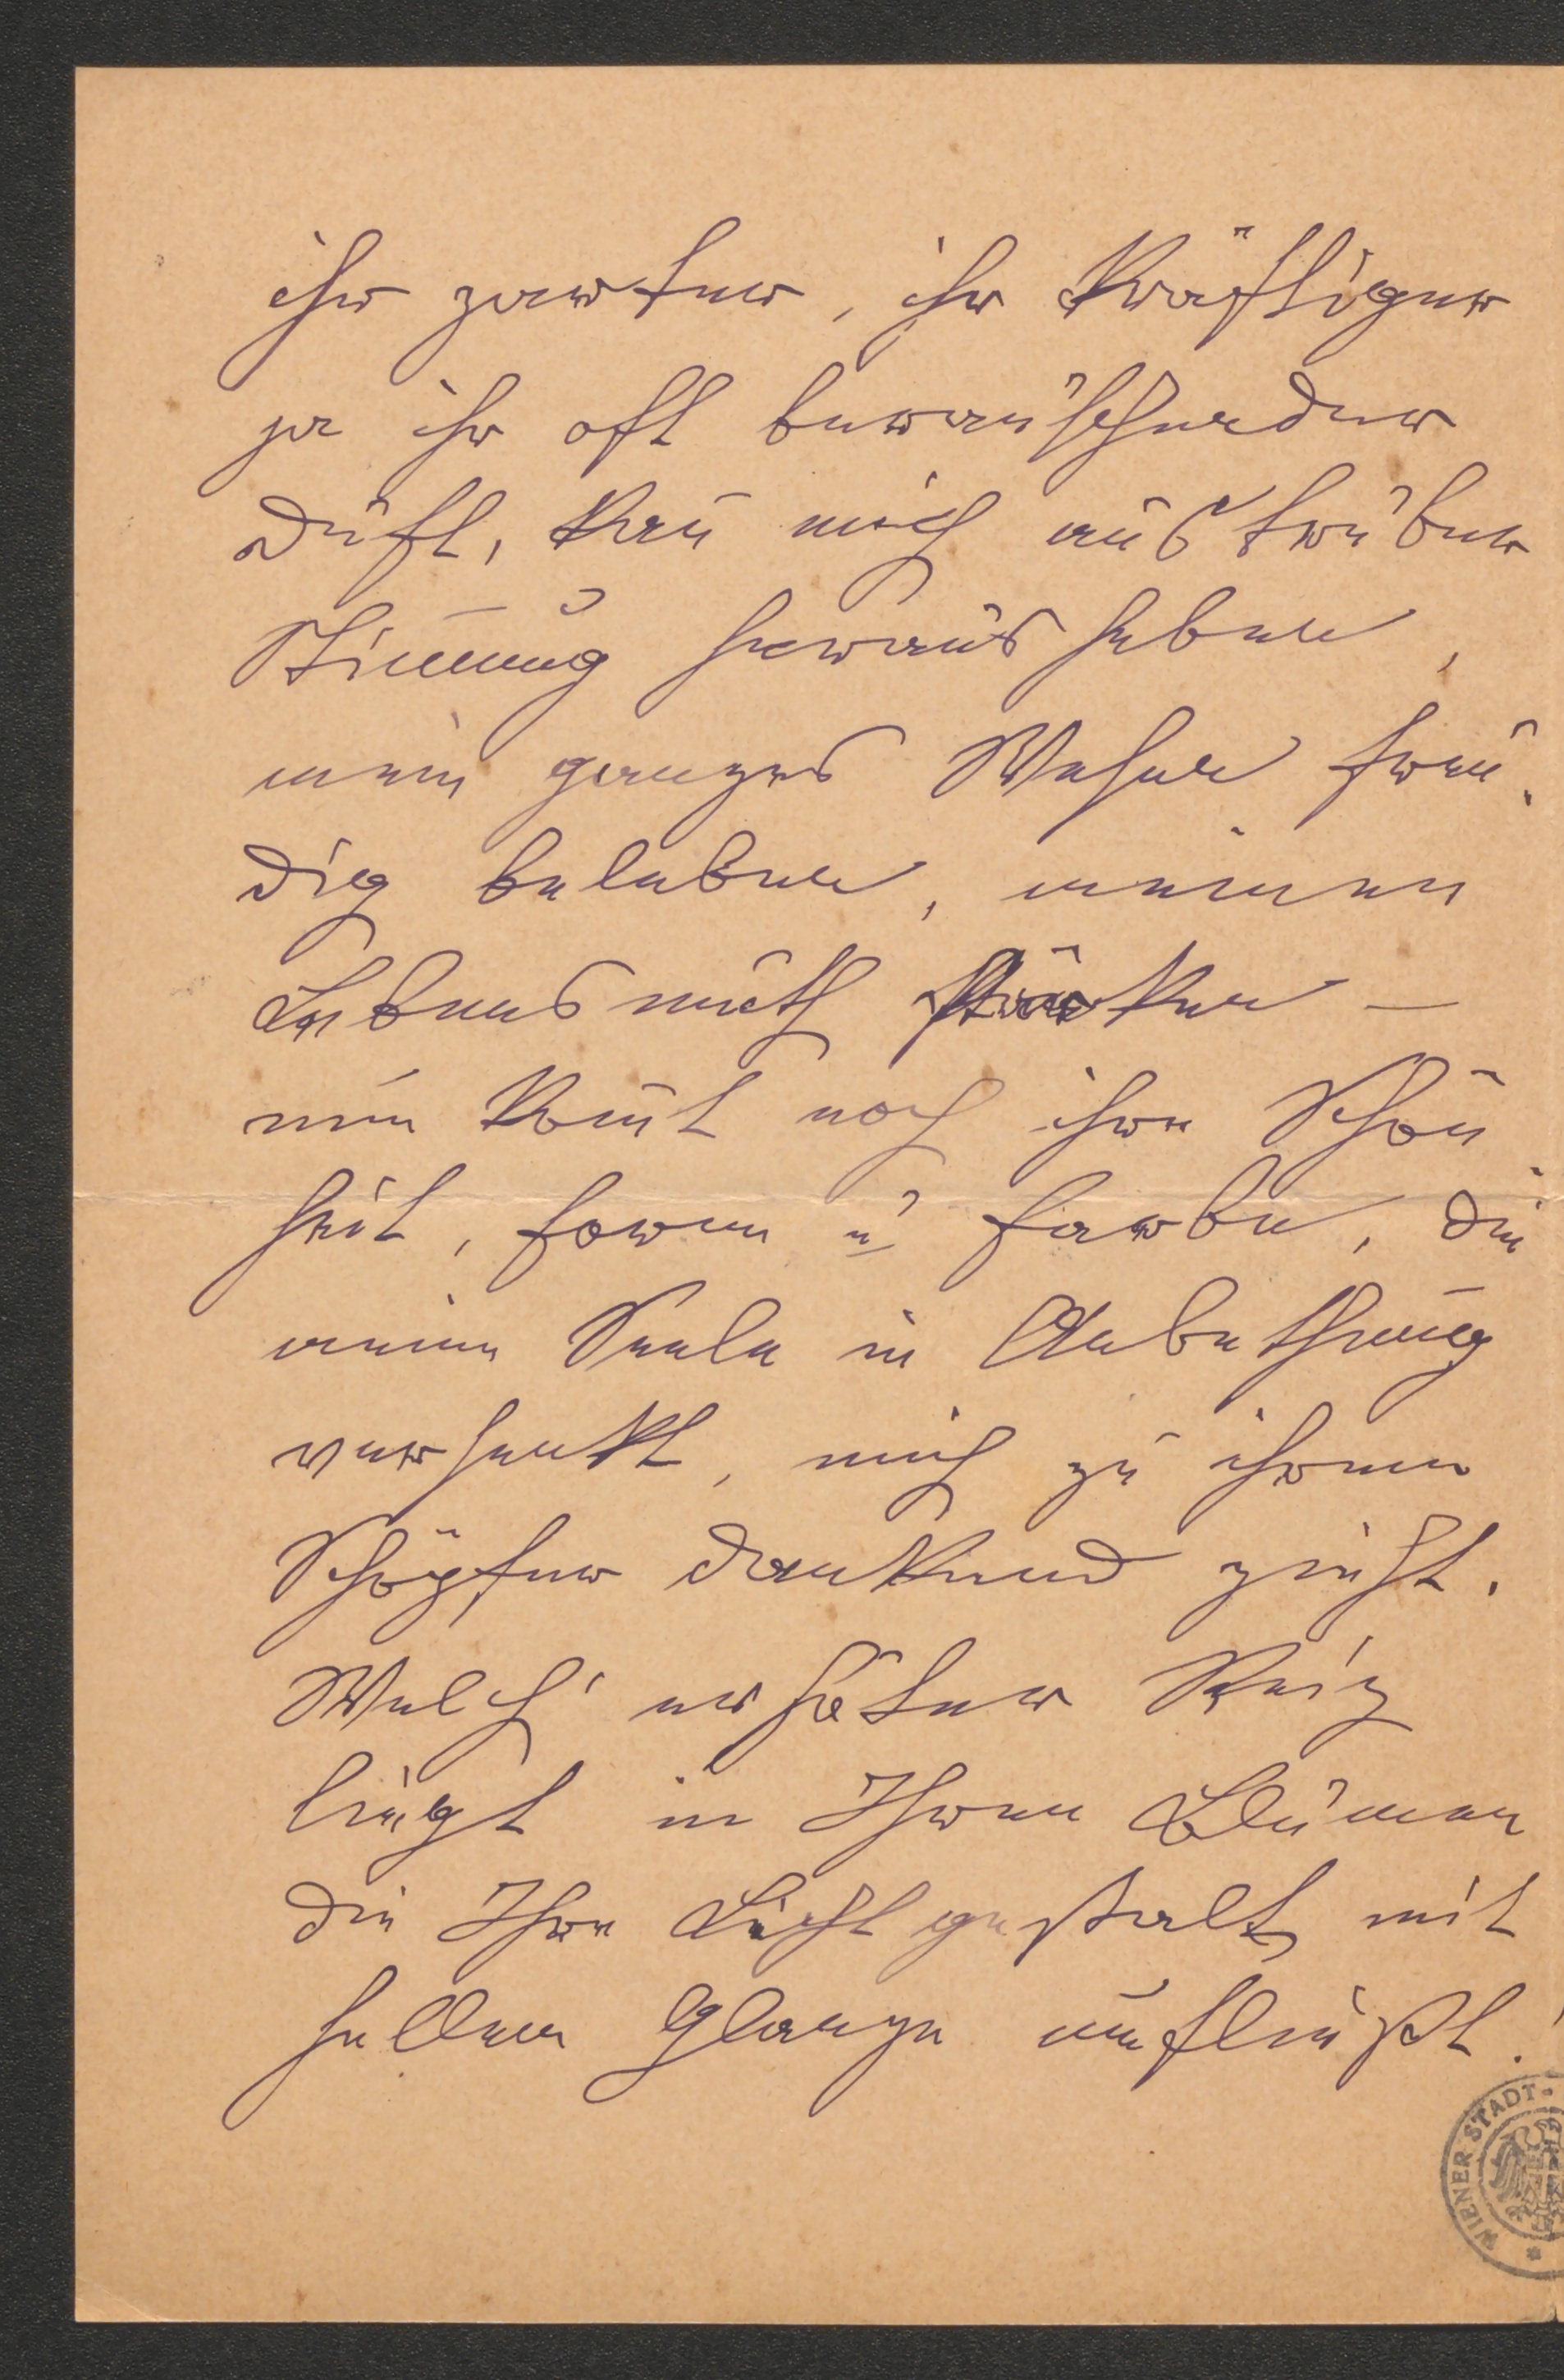 ihr zarter, ihr kräftiger
ja ihr oft berauschender
Duft, kan̅ mich aus trüber
Stim̅ung herausheben,
mein ganzes Wesen freu-
dig beleben, meinen
Lebensmuth stärken –
nun kom̅t noch ihre Schön
heit, Form u Farbe, die
meine Seele in Anbethung
versenkt, mich zu ihrem
Schöpfer dankend zieht.
Welch' erhöter Reiz
liegt in Ihren Blumen
die Ihre Lichtgestalt mit
hellem Glanze umfließt!
WIENER STADT-